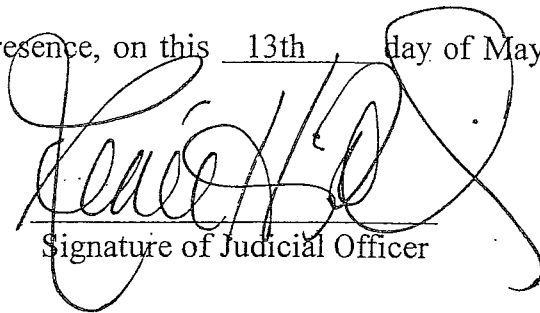 resence, on this 13th day of May
Signature of Judicial Officer